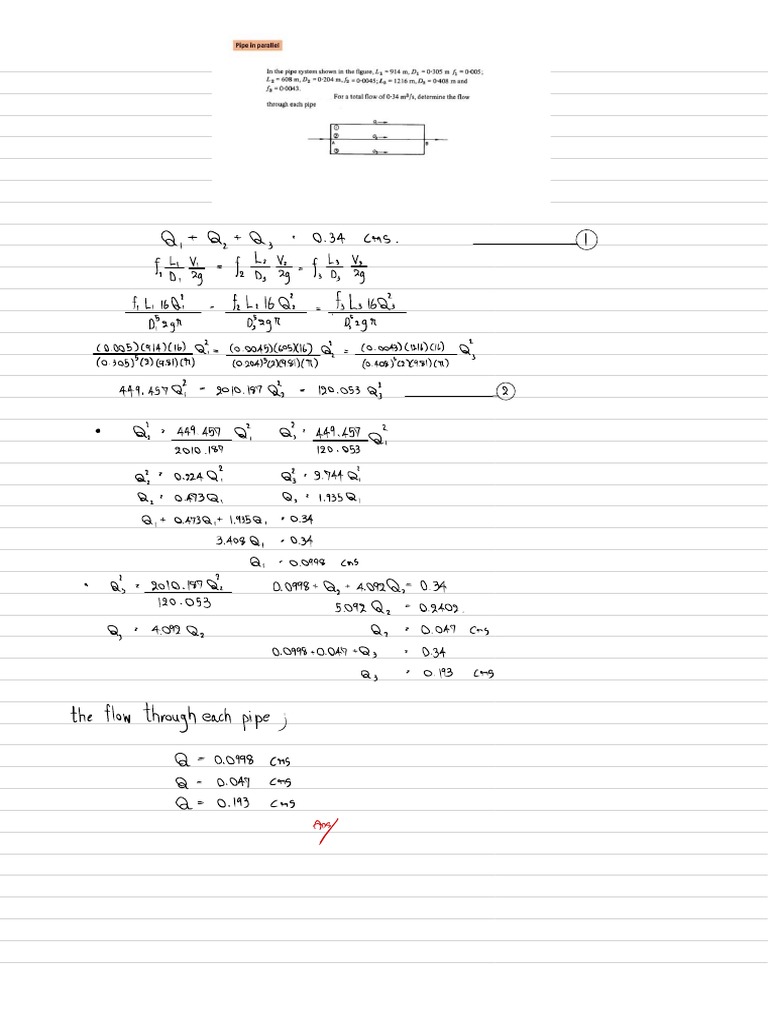 Pipe in parallel
In the pipe system shown in the figure, L₁ = 914 m, D₁ = 0·305 m f₁ = 0·005;
L₂ = 608 m, D₂ = 0·204 m, f₂ = 0·0045; L₃ = 1216 m, D₃ = 0·408 m and
f₃ = 0·0043.
For a total flow of 0·34 m³/s, determine the flow
through each pipe
Q₁
① 
② Q₂
A B
③ Q₃
Q₁ + Q₂ + Q₃ = 0.34 cms. ①
f₁ L₁/D₁ V₁²/2g = f₂ L₂/D₂ V₂²/2g = f₃ L₃/D₃ V₃²/2g
f₁L₁16Q₁²/D₁⁵2gπ = f₂L₂16Q₂²/D₂⁵2gπ = f₃L₃16Q₃²/D₃⁵2gπ
(0.005)(914)(16)/(0.305)⁵(2)(9.81)(π) Q₁² = (0.0045)(605)(16)/(0.204)⁵(2)(9.81)(π) Q₂² = (0.0043)(1216)(16)/(0.408)⁵(2)(9.81)(π) Q₃²
449.457 Q₁² = 2010.187 Q₂² = 120.053 Q₃² ②
• Q₂² = 449.457/2010.187 Q₁² Q₃² = 449.457/120.053 Q₁²
Q₂² = 0.224 Q₁² Q₃² = 3.744 Q₁²
Q₂ = 0.473Q₁ Q₃ = 1.935Q₁
Q₁ + 0.473Q₁ + 1.935Q₁ = 0.34
3.408 Q₁ = 0.34
Q₁ = 0.0998 cms
• Q₃² = 2010.187 Q₂²/120.053 0.0998 + Q₂ + 4.092Q₂ = 0.34
5.092 Q₂ = 0.2402.
Q₃ = 4.092 Q₂ Q₂ = 0.047 cms
0.0998+0.047+Q₃ = 0.34
Q₃ = 0.193 cms
the flow through each pipe ;
Q = 0.0998 cms
Q = 0.047 cms
Q = 0.193 cms
Ans/